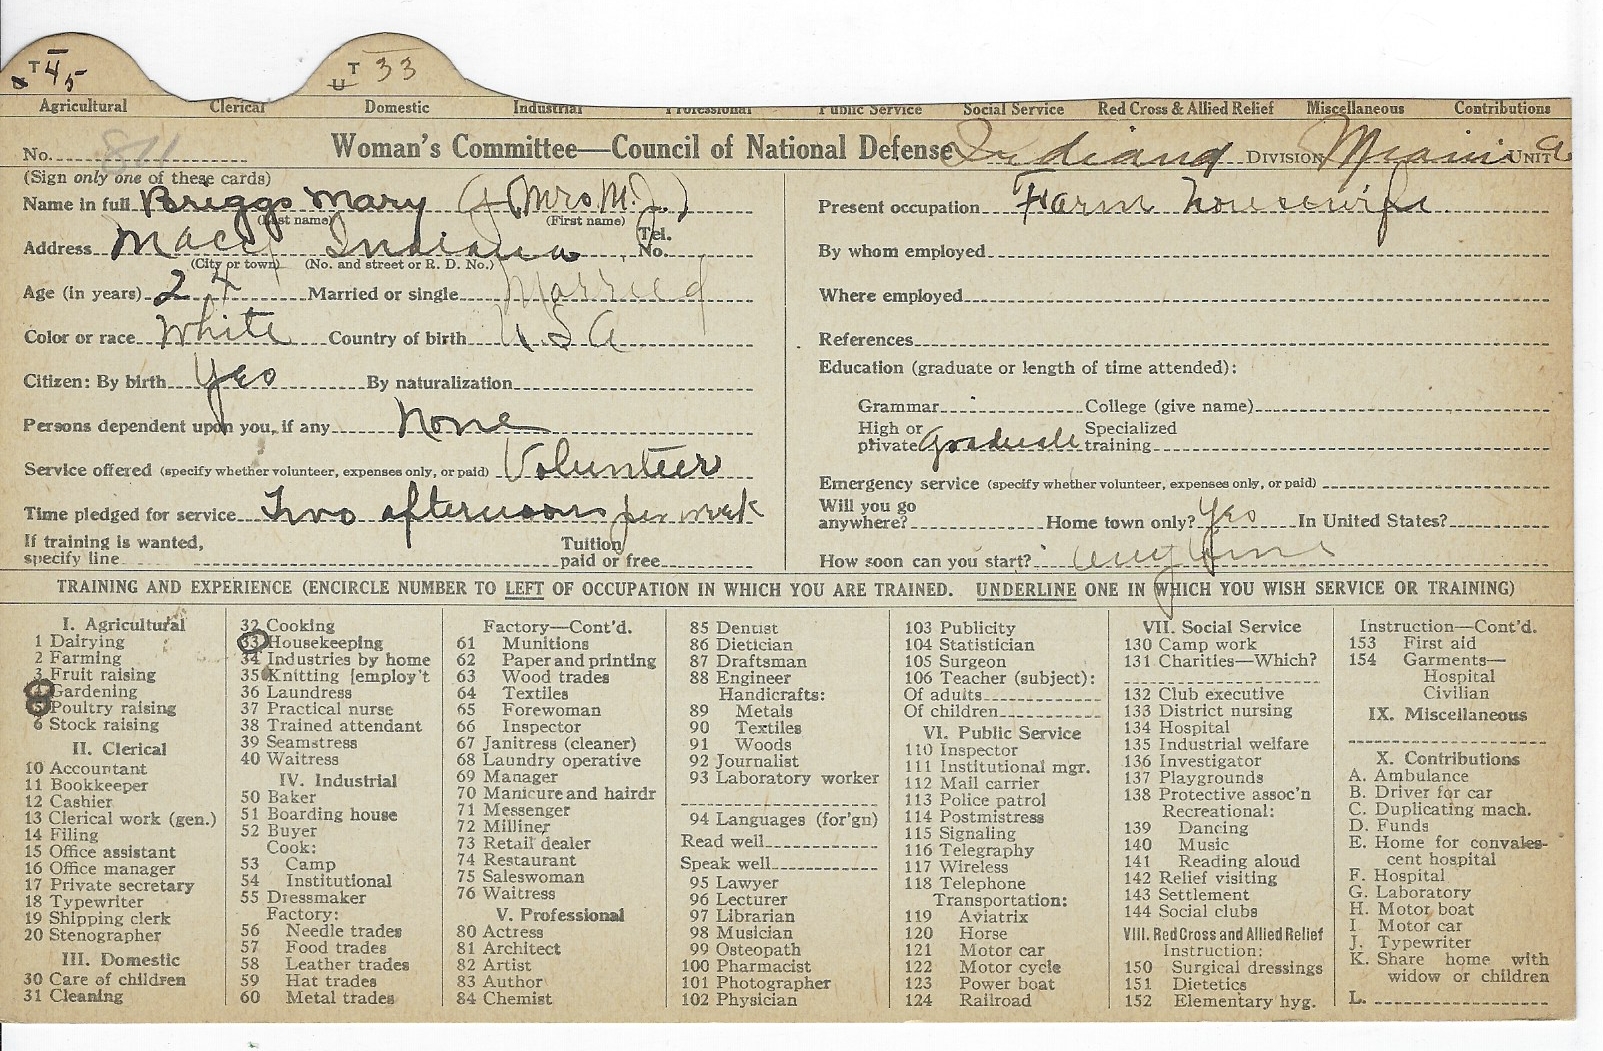 T 45 T U 33
Agricultural Clerical Domestic Industrial Professional Public Service Social Service Red Cross & Allied Relief Miscellaneous Contributions
No. 811 Woman's Committee—Council of National Defense Indiana DIVISION Miami UNIT
(Sign only one of these cards)
Name in full Briggs Mary (Mrs. M. J.)
(Last name) (First name)
Address Macy Indiana Tel. No.
(City or town) (No. and street or R. D. No.)
Age (in years) 24 Married or single Married
Color or race White Country of birth U S A
Citizen: By birth Yes By naturalization
Persons dependent upon you, if any None
Service offered (specify whether volunteer, expenses only, or paid) Volunteer
Time pledged for service Two afternoons per week
If training is wanted, specify line Tuition paid or free
Present occupation Farm housewife
By whom employed
Where employed
References
Education (graduate or length of time attended):
Grammar College (give name)
High or private graduate Specialized training
Emergency service (specify whether volunteer, expenses only, or paid)
Will you go anywhere? Home town only? Yes In United States?
How soon can you start? any time
TRAINING AND EXPERIENCE (ENCIRCLE NUMBER TO LEFT OF OCCUPATION IN WHICH YOU ARE TRAINED. UNDERLINE ONE IN WHICH YOU WISH SERVICE OR TRAINING)
I. Agricultural
1 Dairying
2 Farming
3 Fruit raising
4 Gardening
5 Poultry raising
6 Stock raising
II. Clerical
10 Accountant
11 Bookkeeper
12 Cashier
13 Clerical work (gen.)
14 Filing
15 Office assistant
16 Office manager
17 Private secretary
18 Typewriter
19 Shipping clerk
20 Stenographer
III. Domestic
30 Care of children
31 Cleaning
32 Cooking
33 Housekeeping
34 Industries by home
35 Knitting [employ't
36 Laundress
37 Practical nurse
38 Trained attendant
39 Seamstress
40 Waitress
IV. Industrial
50 Baker
51 Boarding house
52 Buyer
Cook:
53 Camp
54 Institutional
55 Dressmaker
Factory:
56 Needle trades
57 Food trades
58 Leather trades
59 Hat trades
60 Metal trades
Factory—Cont'd.
61 Munitions
62 Paper and printing
63 Wood trades
64 Textiles
65 Forewoman
66 Inspector
67 Janitress (cleaner)
68 Laundry operative
69 Manager
70 Manicure and hairdr
71 Messenger
72 Milliner
73 Retail dealer
74 Restaurant
75 Saleswoman
76 Waitress
V. Professional
80 Actress
81 Architect
82 Artist
83 Author
84 Chemist
85 Dentist
86 Dietician
87 Draftsman
88 Engineer
Handicrafts:
89 Metals
90 Textiles
91 Woods
92 Journalist
93 Laboratory worker
94 Languages (for'gn)
Read well
Speak well
95 Lawyer
96 Lecturer
97 Librarian
98 Musician
99 Osteopath
100 Pharmacist
101 Photographer
102 Physician
103 Publicity
104 Statistician
105 Surgeon
106 Teacher (subject):
Of adults
Of children
VI. Public Service
110 Inspector
111 Institutional mgr.
112 Mail carrier
113 Police patrol
114 Postmistress
115 Signaling
116 Telegraphy
117 Wireless
118 Telephone
Transportation:
119 Aviatrix
120 Horse
121 Motor car
122 Motor cycle
123 Power boat
124 Railroad
VII. Social Service
130 Camp work
131 Charities—Which?
132 Club executive
133 District nursing
134 Hospital
135 Industrial welfare
136 Investigator
137 Playgrounds
138 Protective assoc'n
Recreational:
139 Dancing
140 Music
141 Reading aloud
142 Relief visiting
143 Settlement
144 Social clubs
VIII. Red Cross and Allied Relief
Instruction:
150 Surgical dressings
151 Dietetics
152 Elementary hyg.
Instruction—Cont'd.
153 First aid
154 Garments—
Hospital
Civilian
IX. Miscellaneous
X. Contributions
A. Ambulance
B. Driver for car
C. Duplicating mach.
D. Funds
E. Home for convales-
cent hospital
F. Hospital
G. Laboratory
H. Motor boat
I Motor car
J. Typewriter
K. Share home with
widow or children
L.